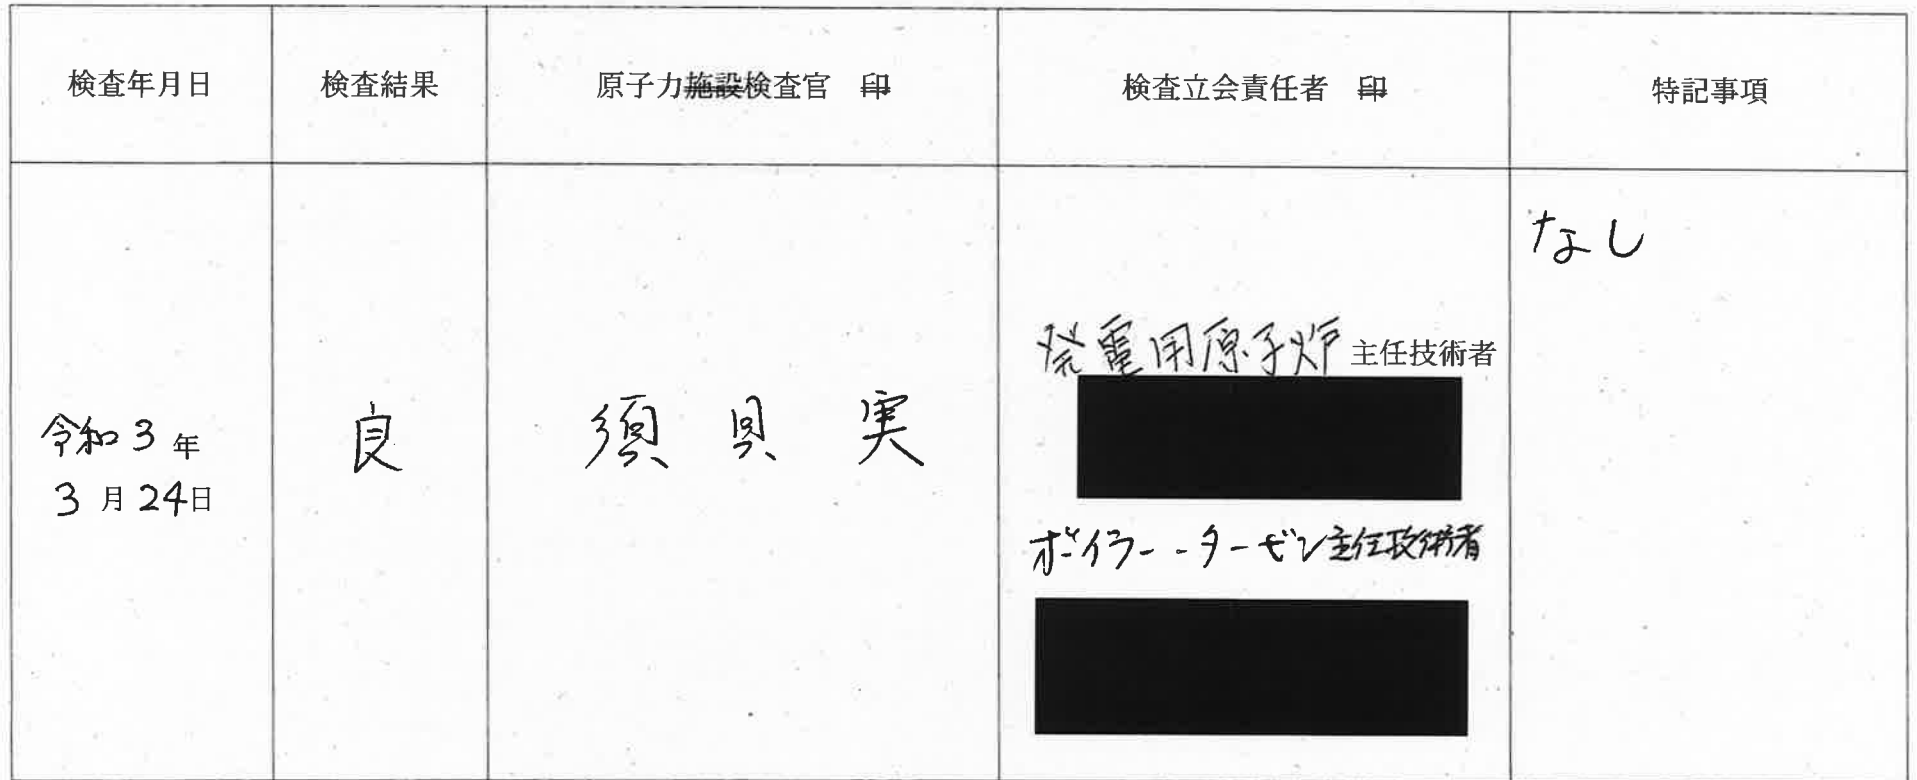 検査年月日
検査結果
原子力施設検査官 印
検査立会責任者 印
特記事項
令和3年
3月24日
良
須貝 実
発電用原子炉主任技術者
ボイラー・タービン主任技術者
なし